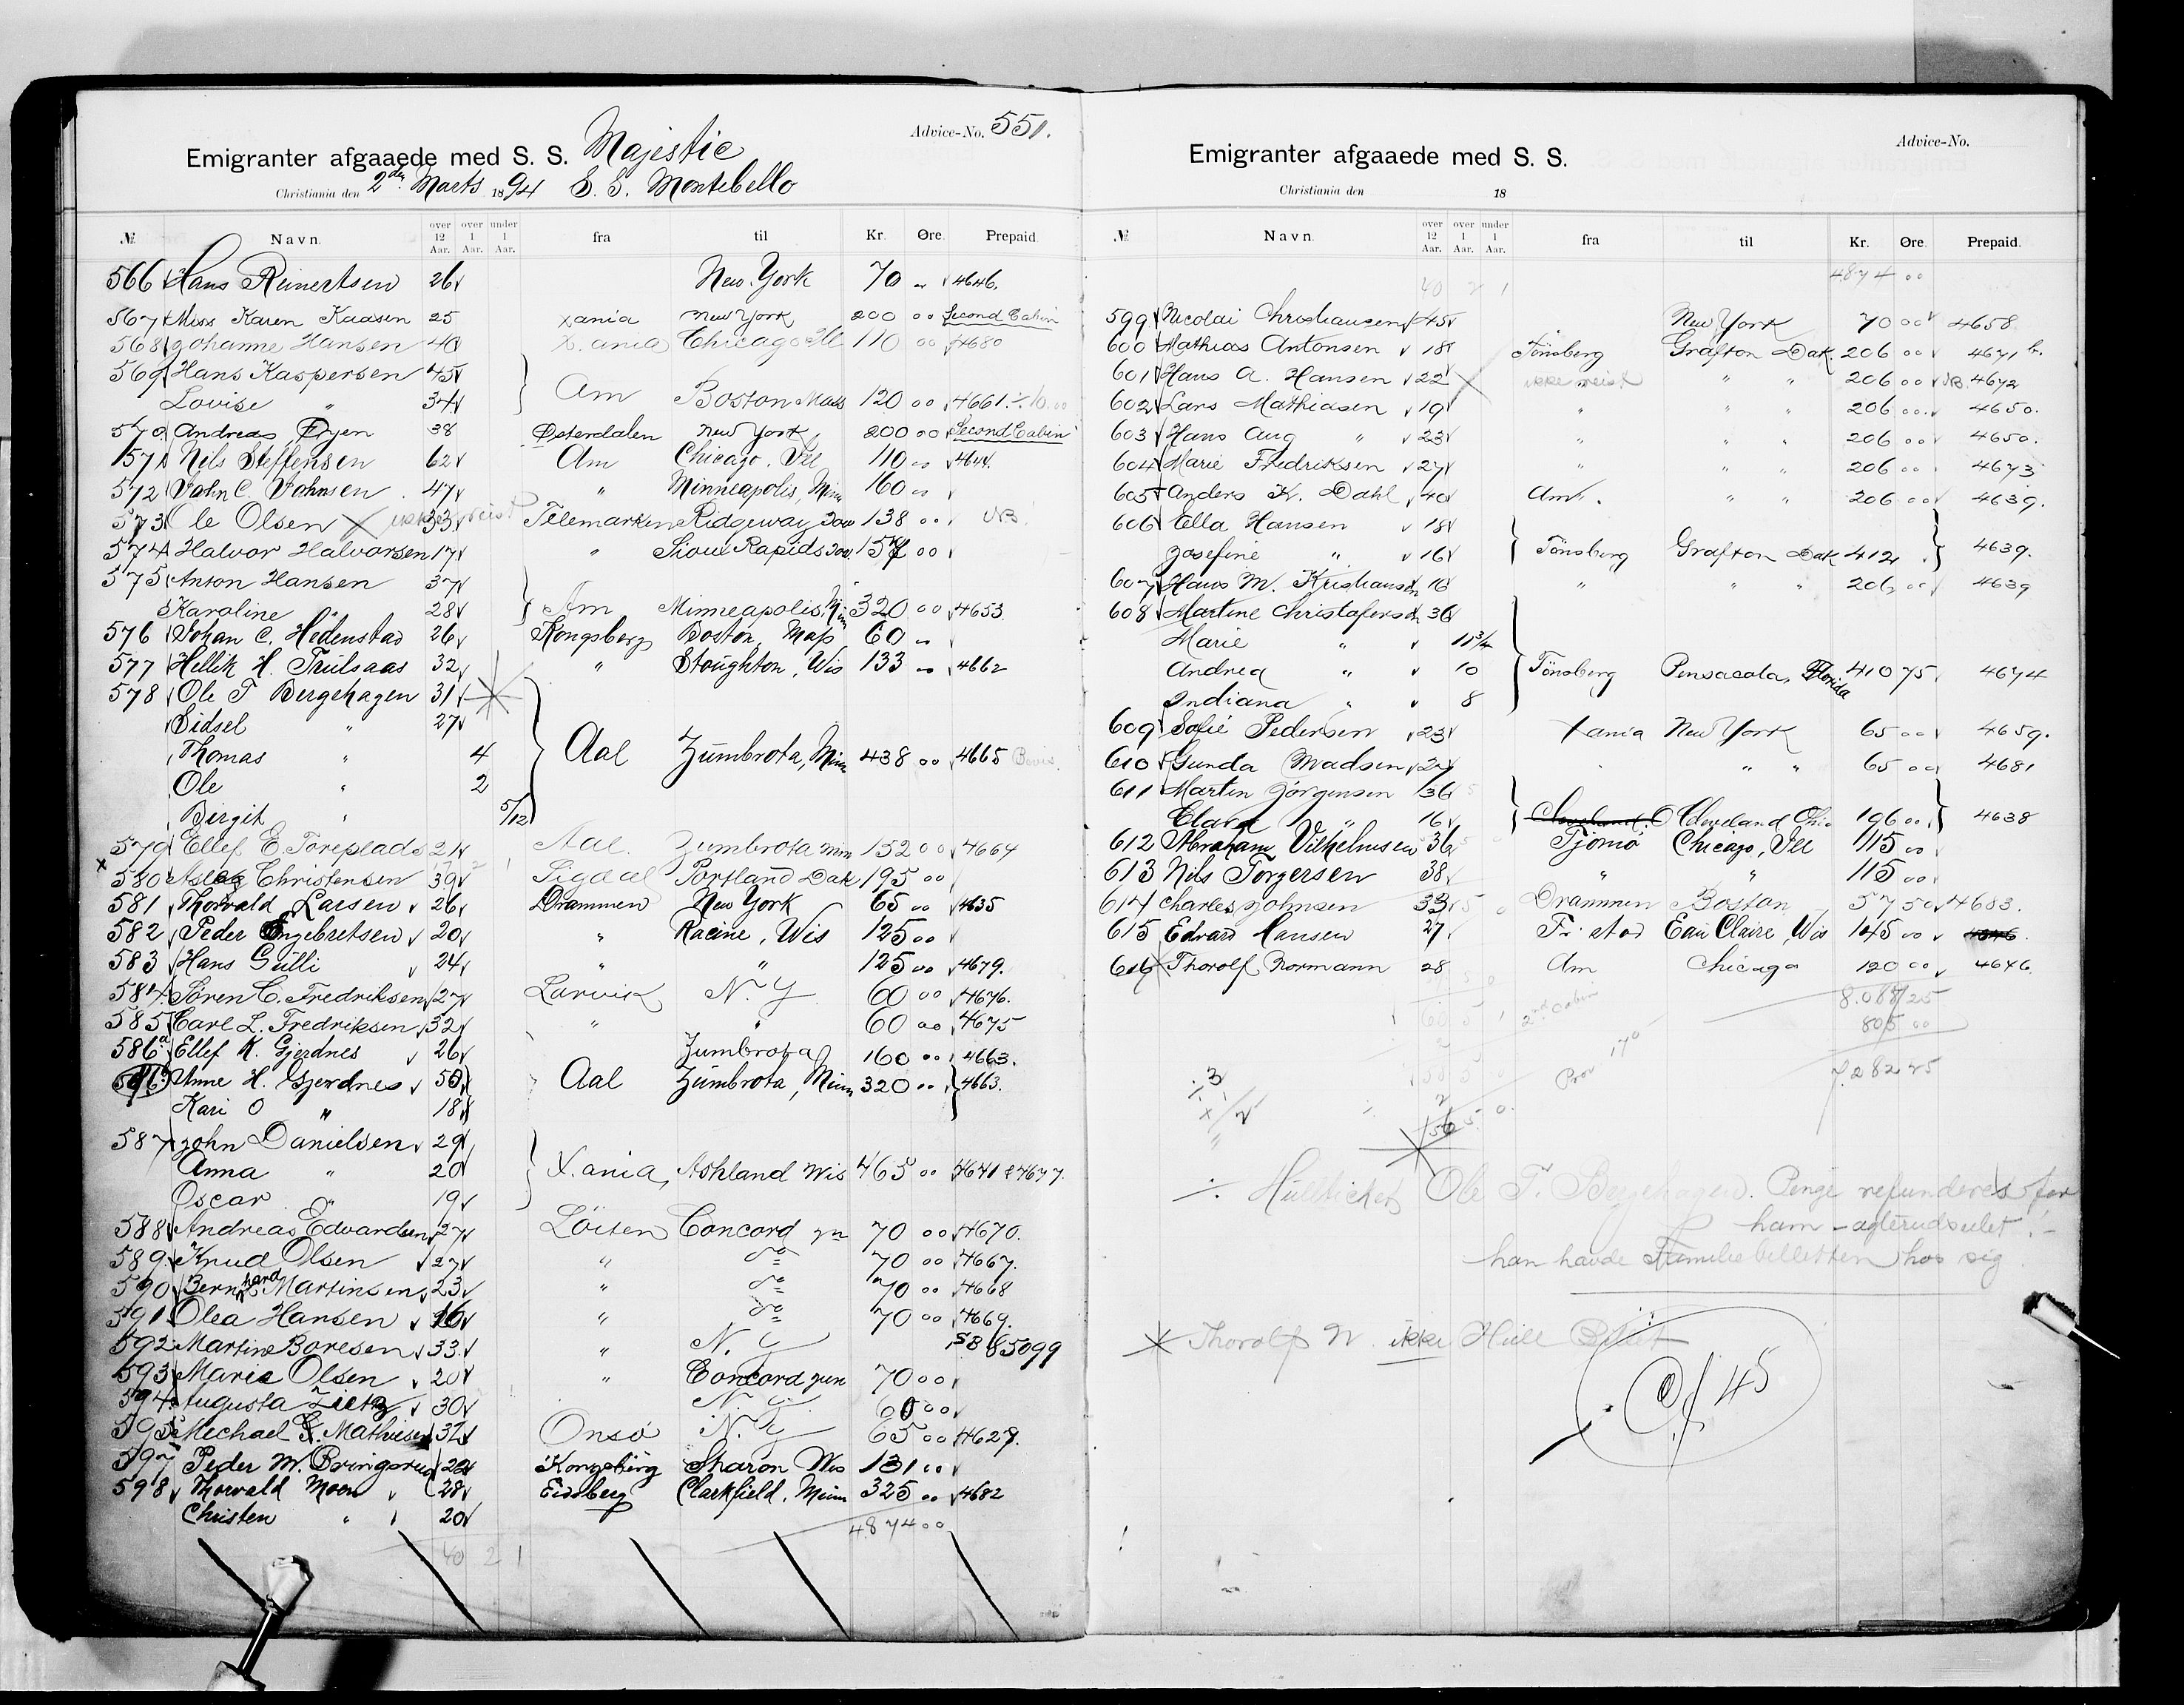 Advice-No. 551.
Emigranter afgaaede med S. S. Majestic
Christiania den 2den Marts 1894 S. S. Montebello
№ Navn. over 12 Aar. over 1 Aar. under 1 Aar. fra til Kr. Øre. Prepaid.
566 Hans Reinertsen 26 New York 70 " 4646.
567 Miss Karen Kaasen 25 Xania New York 200 00 Second Cabin
568 Johanne Hansen 40 X.ania Chicago Ill 110 00 4680
569 Hans Kaspersen 45
Lovise " 34 Am Boston Mass 120 00 4661.
570 Andreas Øyen 38 Østerdalen New York 200 00 Second Cabin
571 Nils Steffensen 62 Am Chicago, Ill 110 00 4644.
572 John C. Johnsen 47 " Minneapolis, Minn 160 00
573 Ole Olsen X ikke reist 33 Telemarken Ridgeway Iow 138 00 NB
574 Halvor Halvorsen 17 " Sioux Rapids Iow. 157 00
575 Anton Hansen 37
Karoline " 28 Am Minneapolis, Min 320 00 4653
576 Johan C. Hedenstad 26 Kongsberg Boston, Mass 60 "
577 Hellik H. Trulsaas 32 " Stoughton, Wis 133 " 4662
578 Ole T Bergehagen 31
Sidsel " 27
Thomas " 4 Aal Zumbrota, Minn 438 00 4665
Ole " 2
Birgit " 5/12
579 Ellef E. Toreplads 21 Aal. Zumbrota Min 152 00 4664
x 580 Aslag Christensen 39 Sigdal Portland Dak 195 00
581 Thorvald Larsen 26 Drammen New York 65 00 4635
582 Peder Engebretsen 20 " Racine, Wis 125 00
583 Hans Gulli 24 " " 125 00 4679.
584 Søren C. Fredriksen 27 Larvik N. Y 60 00 4676.
585 Carl L. Fredriksen 32 " " 60 00 4675
586a Ellef K. Gjerdnes 26 Zumbrota 160 00 4663.
586b Anne H. Gjerdnes 50 Aal Zumbrota, Minn 320 00 4663.
Kari O " 18
587 John Danielsen 29
Anna " 20 X.ania, Ashland Wis 465 00 4641 & 4677.
Oscar " 19
588 Andreas Edvardsen 27 Löiten Concord 70 00 4670.
589 Knud Olsen 27 " do 70 00 4667.
590 Bernhard Martinsen 23 " do 70 00 4668
591 Olea Hansen 16 " do 70 00 4669.
592 Martine Boresen 33 " N. Y 85099
593 Marie Olsen 20 " Concord 70 00
594 Augusta Zietz 30 N. Y. 60 00
595 Mechael Mathiesen 32 Onsö N. Y 65 00 4627.
597 Peder M. Bringsrud 22 Kongsberg Sharon Wis 131 00
598 Thorvald Moen 28 Eidsberg Clarkfield, Minn 325 00 4682
Christen " 20
4874 00
40 2 1
Advice-No.
Emigranter afgaaede med S. S.
Christiania den 18
№ Navn. over 12 Aar. over 1 Aar. under 1 Aar. fra til Kr. Øre. Prepaid.
40 2 1 4874 00
599 Nicolai Christiansen 45 New York 70 00 4658
600 Mathias Antonsen 18 Tönsberg Grafton Dak. 206 00 4671 b.
601 Hans A. Hansen 22 X ikke reist " " 206 00 NB 4672
602 Lars Mathiasen 19 " " " 206 00 4650.
603 Hans Aug " 23 " " " 206 00 4650.
604 Marie Fredriksen 27 " " " 206 00 4673
605 Anders K. Dahl 40 Am. " " 206 00 4639.
606 Ella Hansen 18
Josefine " 16 Tönsberg Grafton Dak 412 4639.
607 Hans M. Kristiansen 16 " " " 206 00 4639
608 Martine Christofersen 36
Marie " 11 3/4
Andrea " 10 Tönsberg Pensacola, Florida 410 75 4674
Indiana " 8
609 Sofie Pedersen 23 Xania New York 65 00 4659.
610 Gunda Madsen 27 " " " 65 00 4681
611 Martin Jörgensen 36
Clara " 16 Cleveland. O Cleveland Ohio 196 00 4638
612 Abraham Vilhelmsen 36 Tjömö Chicago, Ill 115 00
613 Nils Torgersen 38 " " 115 00
614 Charles Johnsen 33 Drammen Boston 57 50 4683.
615 Edvard Hansen 27 Fr.stad Eau Claire, Wis 145 00
616 Thorolf Normann 28 Am Chicago 120 00 4646
8.087 25
805 00
7.282 25
2nd Cabin
Prov
170
÷ 3
÷ Hullticket Ole T. Bergehagen. Penge refunderes for
ham - agterudseilet! -
han havde Familiebilletten hos sig
Thorolf N. ikke Hull Billet
45